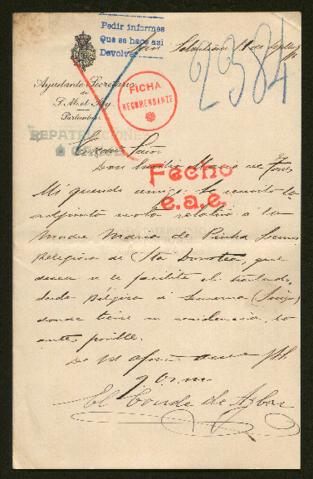 Pedir informes
Que se hace así
Devolver
San Sebastian
2384
Ayudante Secretario
de
S. M. el Rey
Particular
FICHA
RECOMENDANTE
REPATRIACIONES
Don Emilio
Fecho
e.a.e.
Mi querido amigo: Le remito la
adjunta nota relativa a la
Madre Maria de Penha Lemos
Religiosa de Sta Dorotea, que
desea se le facilite el traslado,
desde Bélgica á Lucerna (Suiza)
donde tiene su residencia, lo
antes posible.
q. e. s. m.
El Conde de Aybar